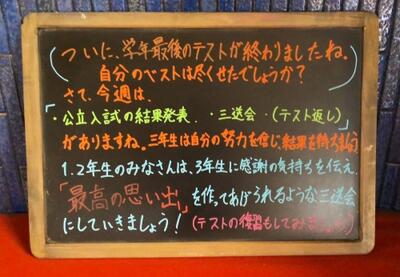 ついに、学年最後のテストが終わりましたね。
自分のベストは尽くせたでしょうか?
さて、今週は、
・公立入試の結果発表、・三送会・(テスト返し)
がありますね。三年生は自分の努力を信じ、結果を待ちましょう
1.2年生のみなさんは、3年生に感謝の気持ちを伝え、
「最高の思い出」を作ってあげられるような三送会
にしていきましょう!(テストの復習もしてみましょう!)